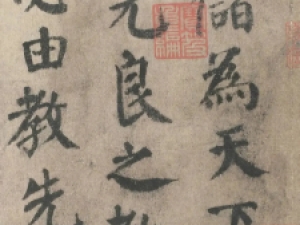 儲為天下
元良之教
由教先